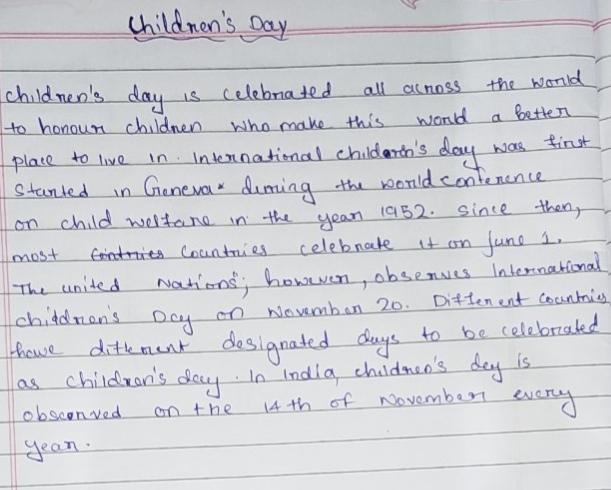 Children's Day
children's day is celebrated all across the world
to honour children who make this world a better
place to live in. International childern's day was first
started in Geneva during the world conference
on child welfare in the year 1952. Since then,
most Contries Countries celebrate it on June 1.
The united Nations, however, observes International
children's Day on November 20. Different Countries
have different designated days to be celebrated
as children's day. In India, children's dey is
observed on the 14th of November every
year.